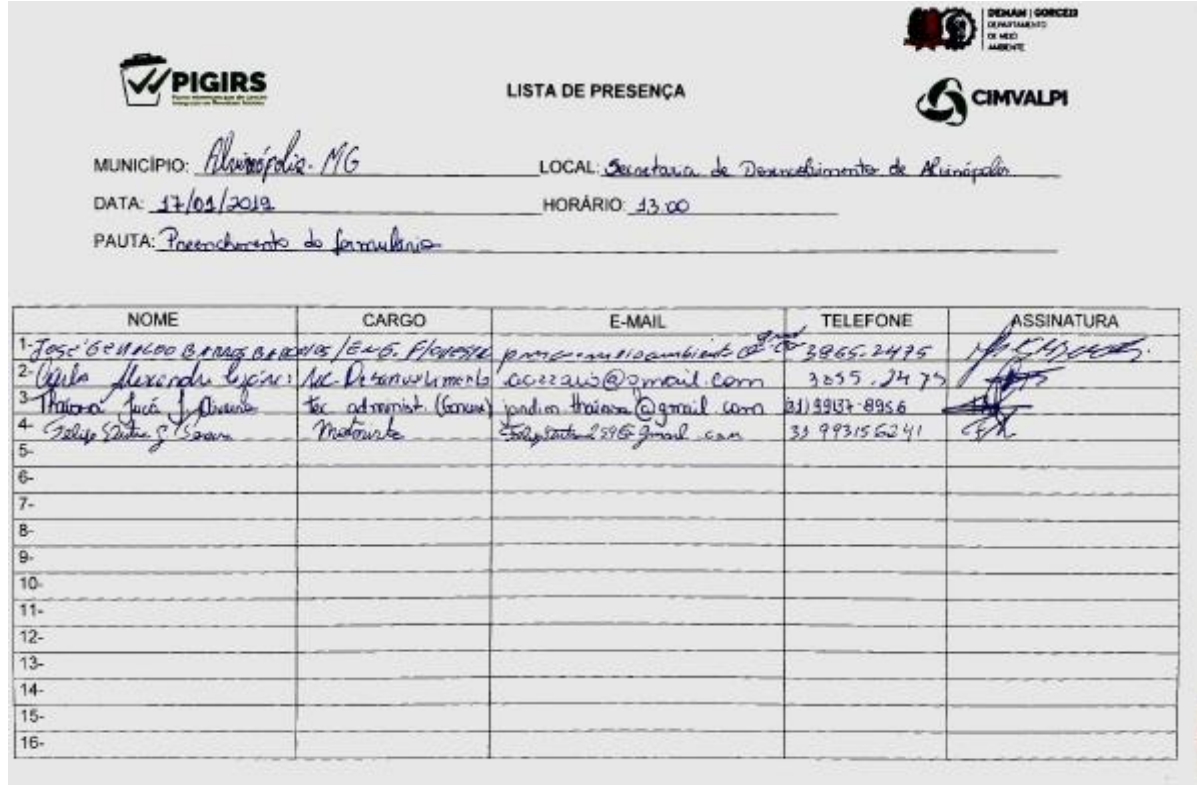 DEMAM | GORCEIX
DEPARTAMENTO
DE MEIO
AMBIENTE
PIGIRS
LISTA DE PRESENÇA
CIMVALPI
MUNICÍPIO: Alvinópolis - MG LOCAL: Secretaria de Desenvolvimento de Alvinópolis
DATA: 17/01/2019 HORÁRIO: 13:00
PAUTA: Preenchimento do formulário
NOME CARGO E-MAIL TELEFONE ASSINATURA
1- José Geraldo Barros Eng. Florestal 3855.2475
2- Alexandre Sec. Desenvolvimento @gmail.com 3855.2475
3- Thainá Jucá J. Oliveira tec administ. (Gorceix) @gmail.com (31) 99137-8956
4- Felipe Motorista 31 993156241
5-
6-
7-
8-
9-
10-
11-
12-
13-
14-
15-
16-